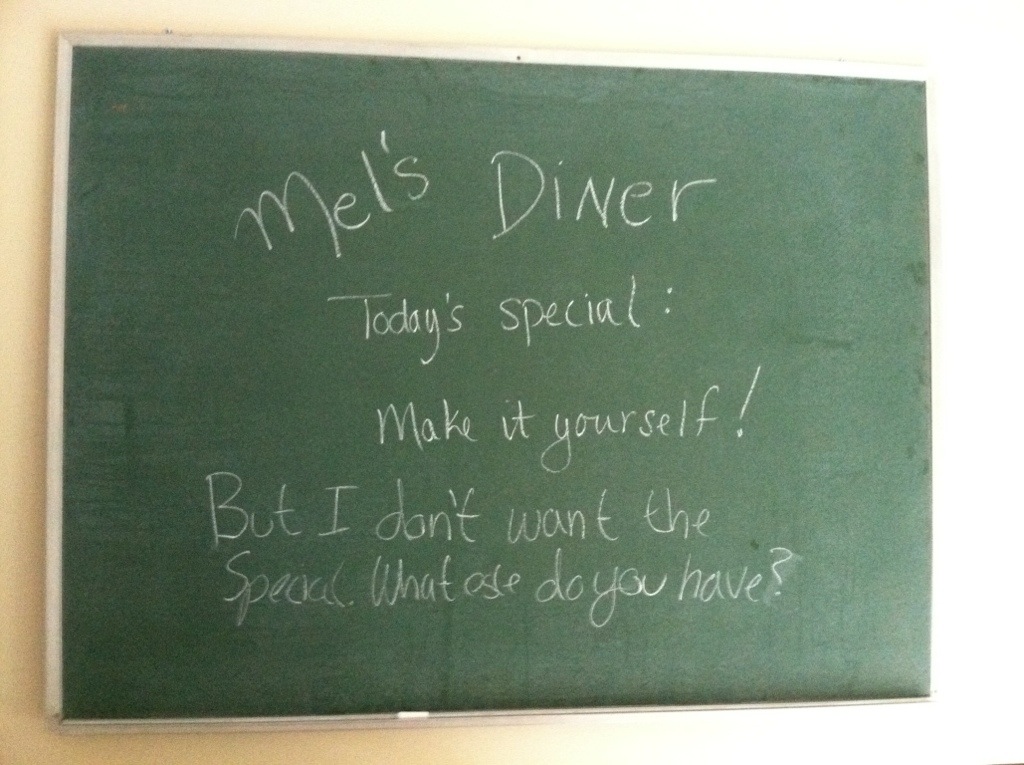 Mel's Diner
Today's special:
Make it yourself!
But I don't want the
Special. What else do you have?